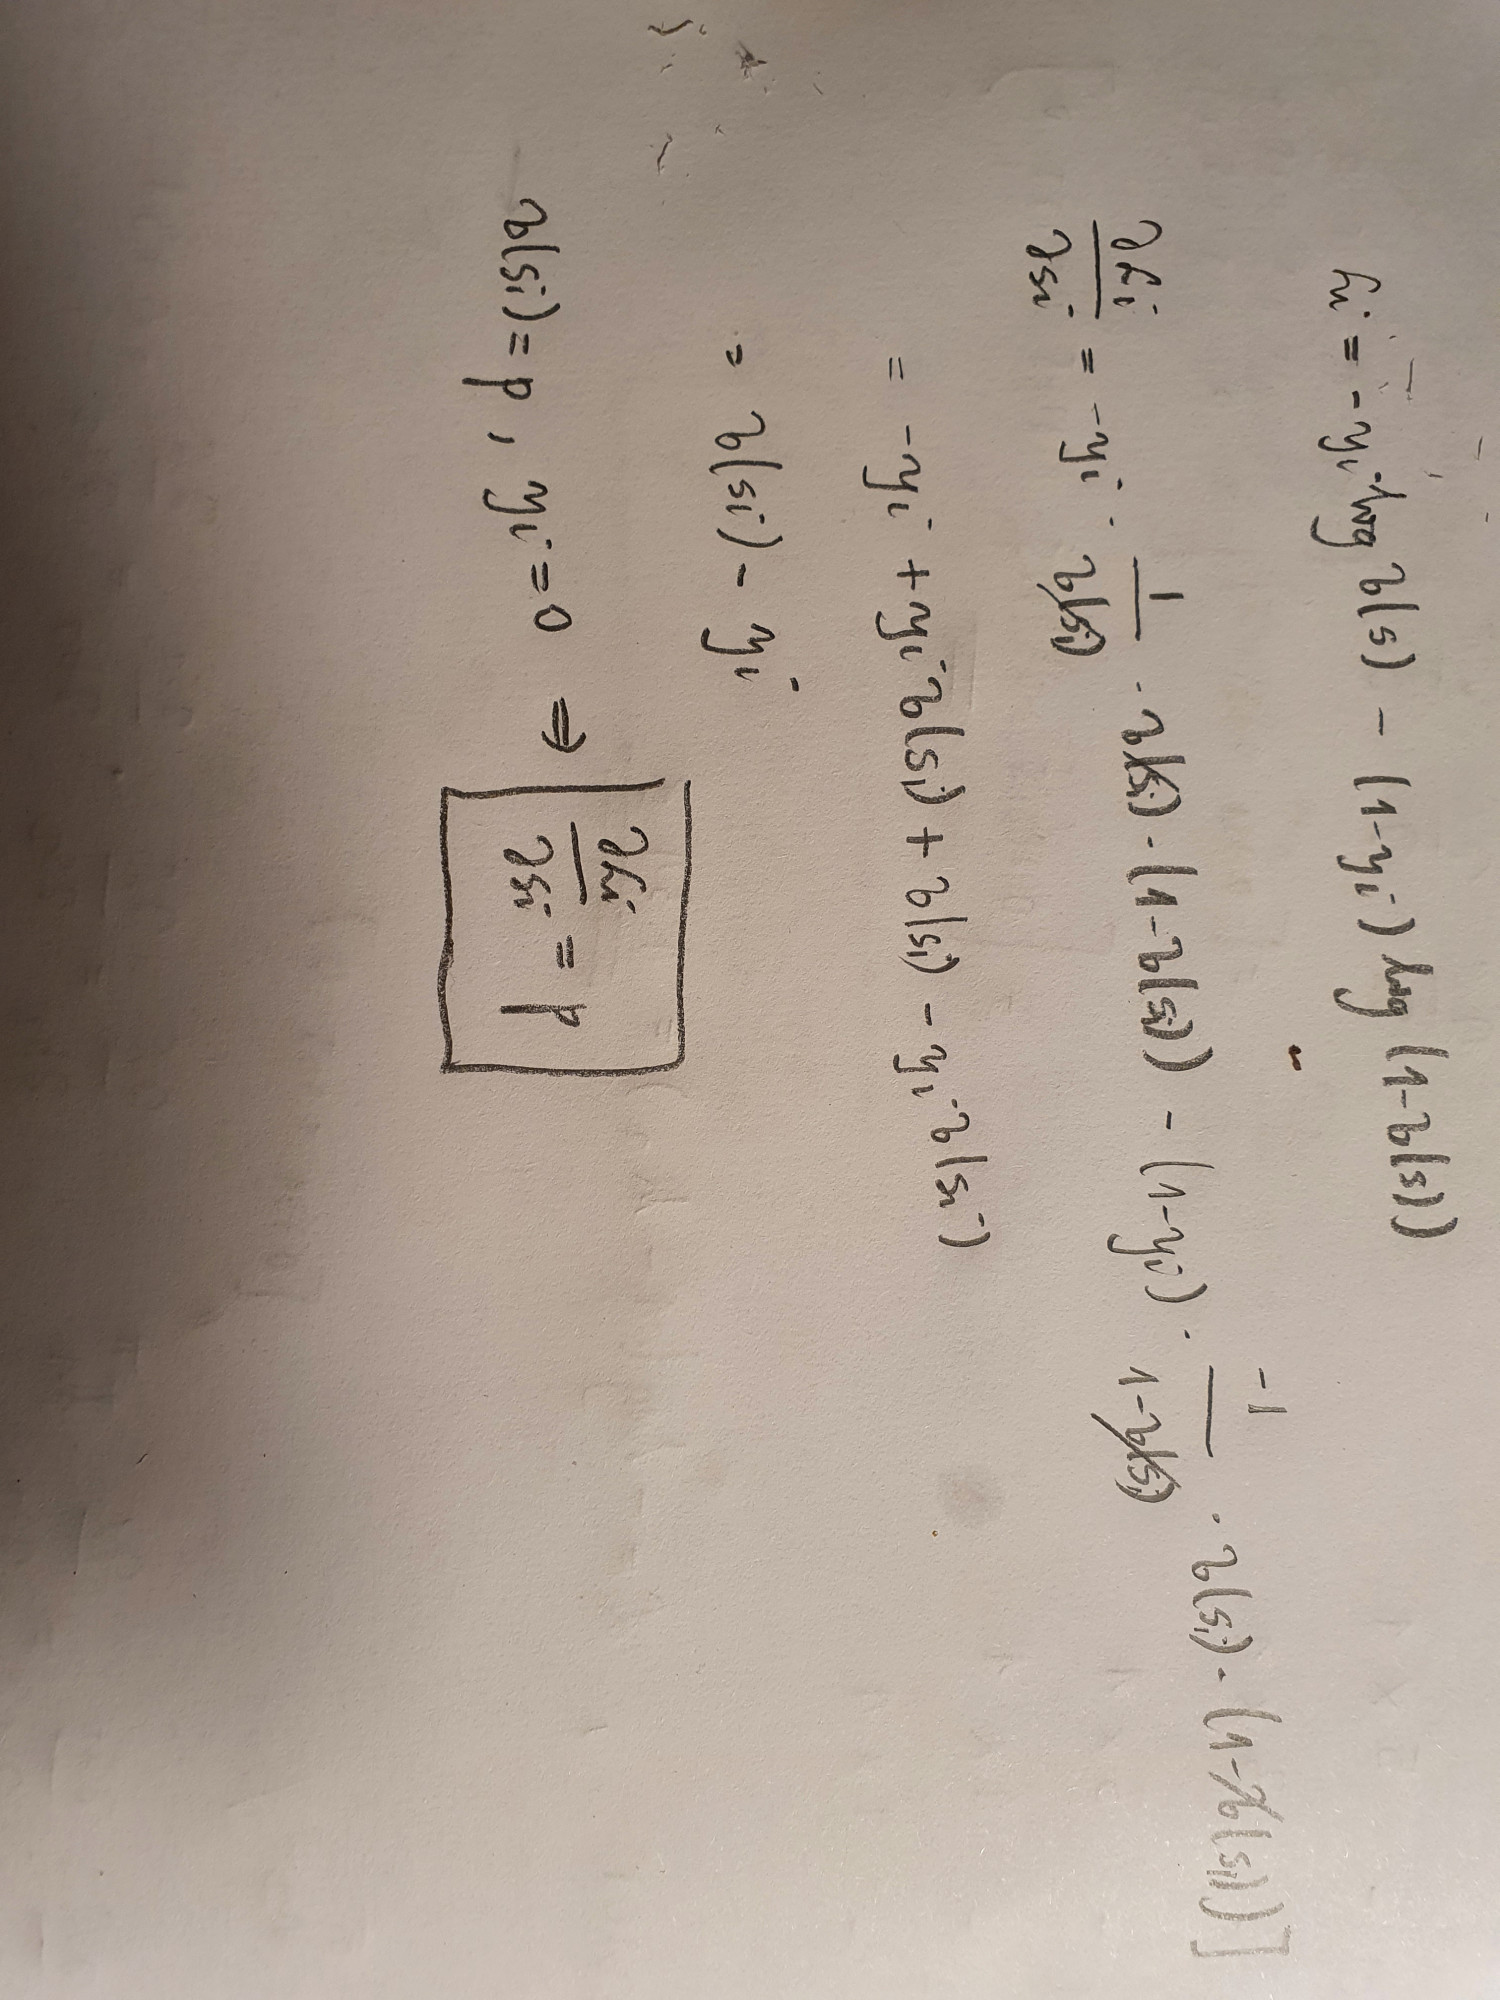 ℓᵢ = -yᵢ·log σ(s) - (1-yᵢ) log (1-σ(s))
∂ℓᵢ/∂sᵢ = -yᵢ · 1/σ(sᵢ) · σ(sᵢ) · (1-σ(sᵢ)) - (1-yᵢ) · -1/(1-σ(sᵢ)) · σ(sᵢ) · (1-σ(sᵢ))]
= -yᵢ + yᵢ·σ(sᵢ) + σ(sᵢ) - yᵢ·σ(sᵢ)
= σ(sᵢ) - yᵢ
σ(sᵢ) = p, yᵢ = 0 ⇒ ∂ℓᵢ/∂sᵢ = p